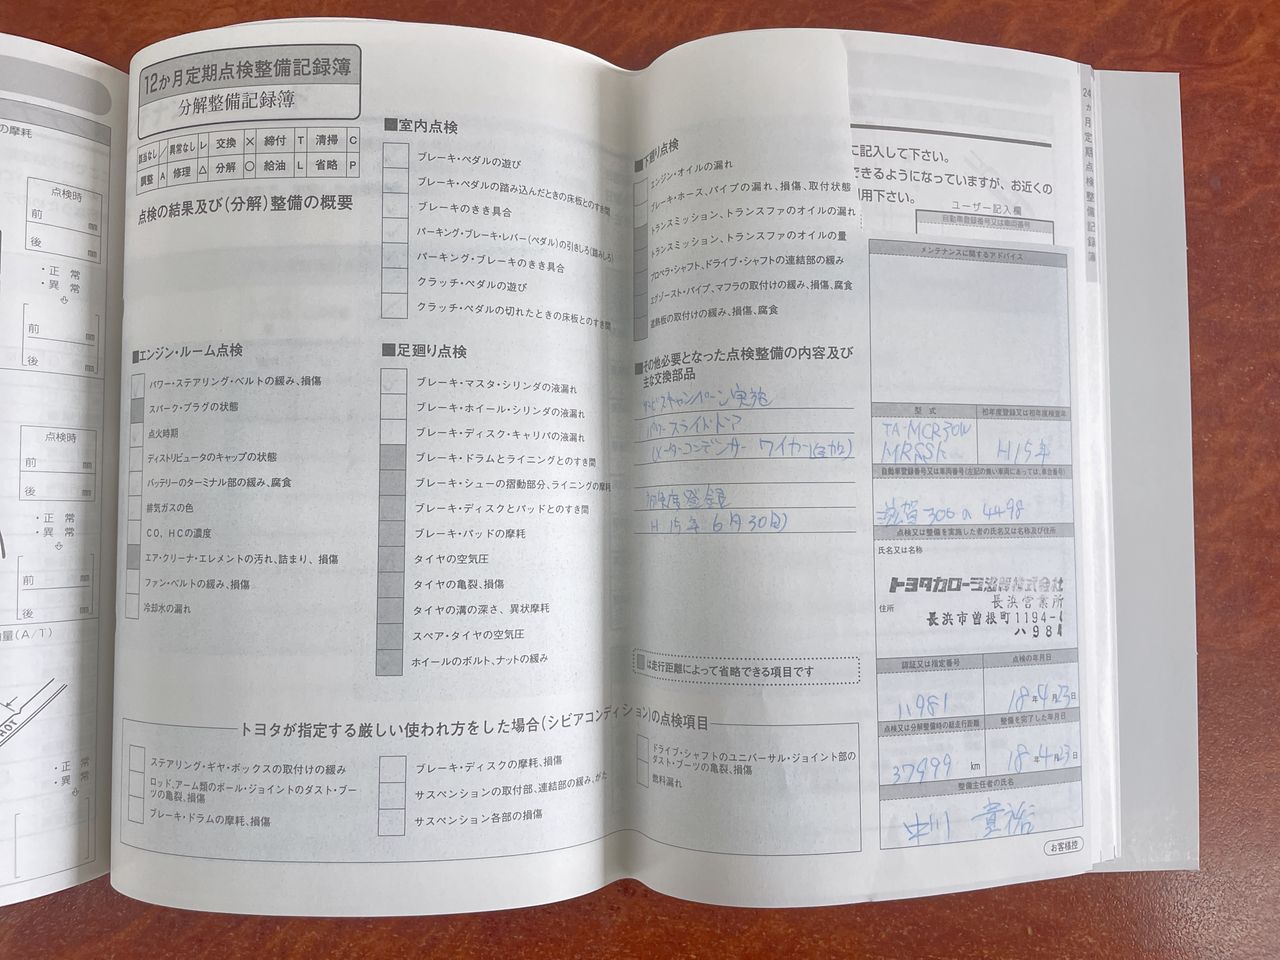 の摩耗
点検時
前
mm
後
mm
・正 常
・異 常
前
mm
後
mm
点検時
前
mm
後
mm
・正 常
・異 常
前
mm
後
mm
量(A/T)
HOT
・正 常
・異 常
12か月定期点検整備記録簿
分解整備記録簿
該当なし / 異常なし レ 交換 × 締付 T 清掃 C
調整 A 修理 △ 分解 ○ 給油 L 省略 P
点検の結果及び(分解)整備の概要
■エンジン・ルーム点検
パワー・ステアリング・ベルトの緩み、損傷
スパーク・プラグの状態
点火時期
ディストリビュータのキャップの状態
バッテリーのターミナル部の緩み、腐食
排気ガスの色
CO、HCの濃度
エア・クリーナ・エレメントの汚れ、詰まり、損傷
ファン・ベルトの緩み、損傷
冷却水の漏れ
■室内点検
ブレーキ・ペダルの遊び
ブレーキ・ペダルの踏み込んだときの床板とのすき間
ブレーキのきき具合
パーキング・ブレーキ・レバー(ペダル)の引きしろ(踏みしろ)
パーキング・ブレーキのきき具合
クラッチ・ペダルの遊び
クラッチ・ペダルの切れたときの床板とのすき間
■足廻り点検
ブレーキ・マスタ・シリンダの液漏れ
ブレーキ・ホイール・シリンダの液漏れ
ブレーキ・ディスク・キャリパの液漏れ
ブレーキ・ドラムとライニングとのすき間
ブレーキ・シューの摺動部分、ライニングの摩耗
ブレーキ・ディスクとパッドとのすき間
ブレーキ・パッドの摩耗
タイヤの空気圧
タイヤの亀裂、損傷
タイヤの溝の深さ、異状摩耗
スペア・タイヤの空気圧
ホイールのボルト、ナットの緩み
■下廻り点検
エンジン・オイルの漏れ
ブレーキ・ホース、パイプの漏れ、損傷、取付状態
トランスミッション、トランスファのオイルの漏れ
トランスミッション、トランスファのオイルの量
プロペラ・シャフト、ドライブ・シャフトの連結部の緩み
エグゾースト・パイプ、マフラの取付けの緩み、損傷、腐食
遮熱板の取付けの緩み、損傷、腐食
■その他必要となった点検整備の内容及び
主な交換部品
サービスキャンペーン実施
パワースライドドア
初度登録
H15年6月30日
は走行距離によって省略できる項目です
トヨタが指定する厳しい使われ方をした場合(シビアコンディション)の点検項目
ステアリング・ギヤ・ボックスの取付けの緩み
ロッド、アーム類のボール・ジョイントのダスト・ブー
ツの亀裂、損傷
ブレーキ・ドラムの摩耗、損傷
ブレーキ・ディスクの摩耗、損傷
サスペンションの取付部、連結部の緩み、がた
サスペンション各部の損傷
ドライブ・シャフトのユニバーサル・ジョイント部の
ダスト・ブーツの亀裂、損傷
燃料漏れ
24か月定期点検整備記録簿
に記入して下さい。
できるようになっていますが、お近くの
用下さい。
ユーザー記入欄
自動車登録番号又は車両番号
メンテナンスに関するアドバイス
型 式
初年度登録又は初年度検査年
TA-MCR30W
H15年
自動車登録番号又は車両番号(左記の無い車両にあっては、車台番号)
滋賀300 の 4498
点検又は整備を実施した者の氏名又は名称及び住所
氏名又は名称
トヨタカローラ滋賀株式会社
長浜営業所
住所
長浜市曽根町1194-1
認証又は指定番号
点検の年月日
11981
18年4月23日
点検又は分解整備時の総走行距離
整備を完了した年月日
37999 km
18年4月23日
整備主任者の氏名
お客様控